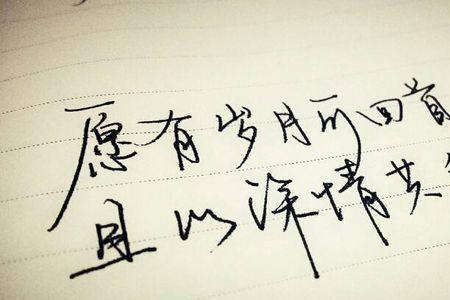 愿有岁月可回首
且以深情共